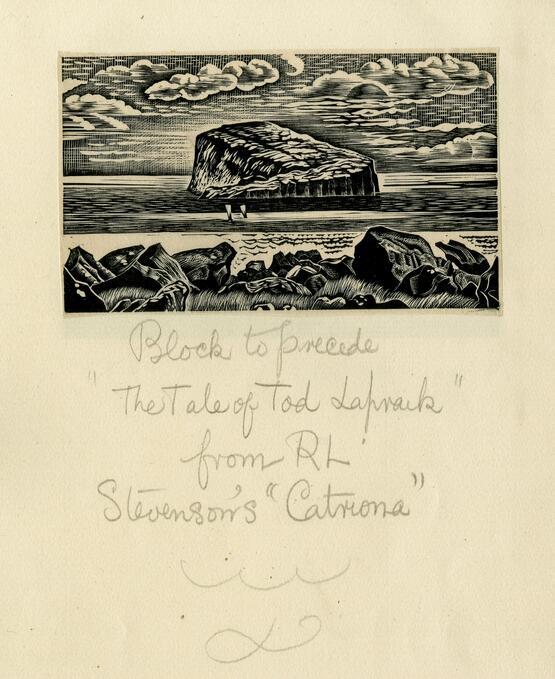 Block to precede
"The Tale of Tod Lapraik"
from RL
Stevenson's "Catriona"